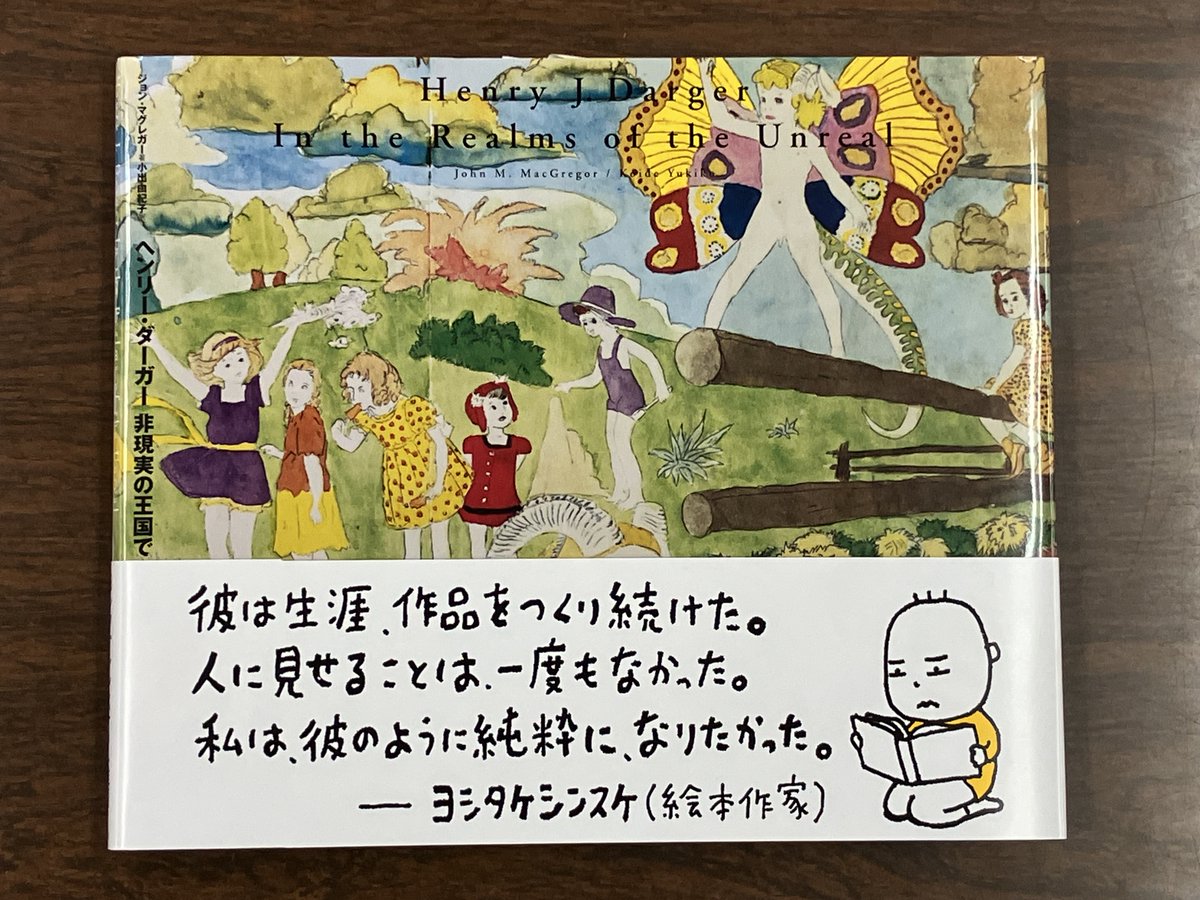 Henry J. Darger
In the Realms of the Unreal
John M. MacGregor / Koide Yukiko
ジョン・マグレガー=著 小出由紀子=訳 ヘンリー・ダーガー 非現実の王国で
彼は生涯、作品をつくり続けた。
人に見せることは、一度もなかった。
私は、彼のように純粋に、なりたかった。
― ヨシタケシンスケ(絵本作家)